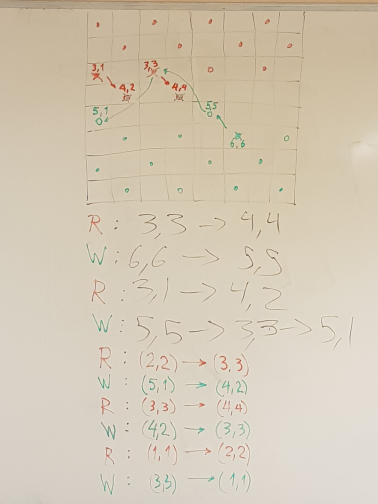 3,1
3,3
4,2
4,4
5,1
5,5
6,6
R: 3,3 → 4,4
W: 6,6 → 5,5
R: 3,1 → 4,2
W: 5,5 → 3,3 → 5,1
R: (2,2) → (3,3)
W: (5,1) → (4,2)
R: (3,3) → (4,4)
W: (4,2) → (3,3)
R: (1,1) → (2,2)
W: (3,3) → (1,1)